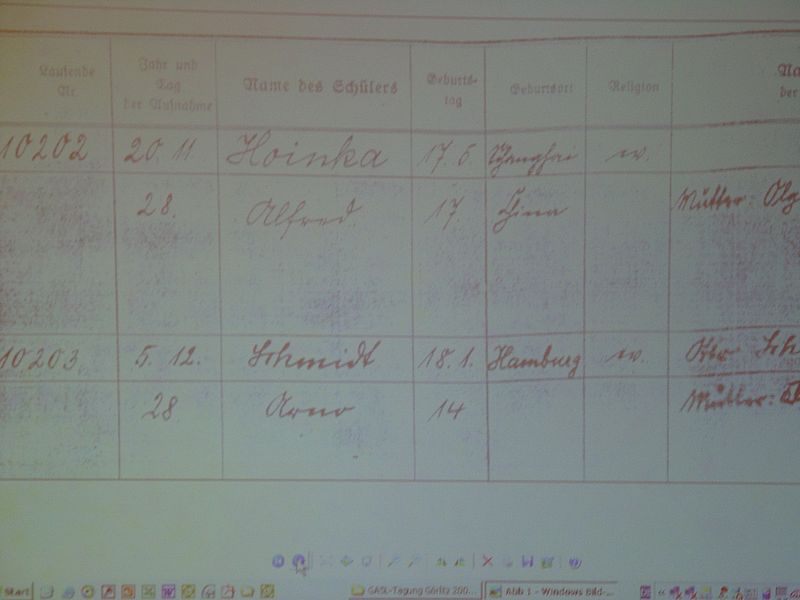 Laufende Nr. Jahr und Tag der Aufnahme Name des Schülers Geburts-tag Geburtsort Religion Na
der
10202 20. 11. Hoinka 17. 6. Schanghai ev.
28. Alfred 17 China Mutter: Olg
10203 5. 12. Schmidt 18. 1. Hamburg ev. Otto Sch
28 Arno 14 Mutter:
Start GASL-Tagung Görlitz 200... Abb 1 - Windows Bild-...